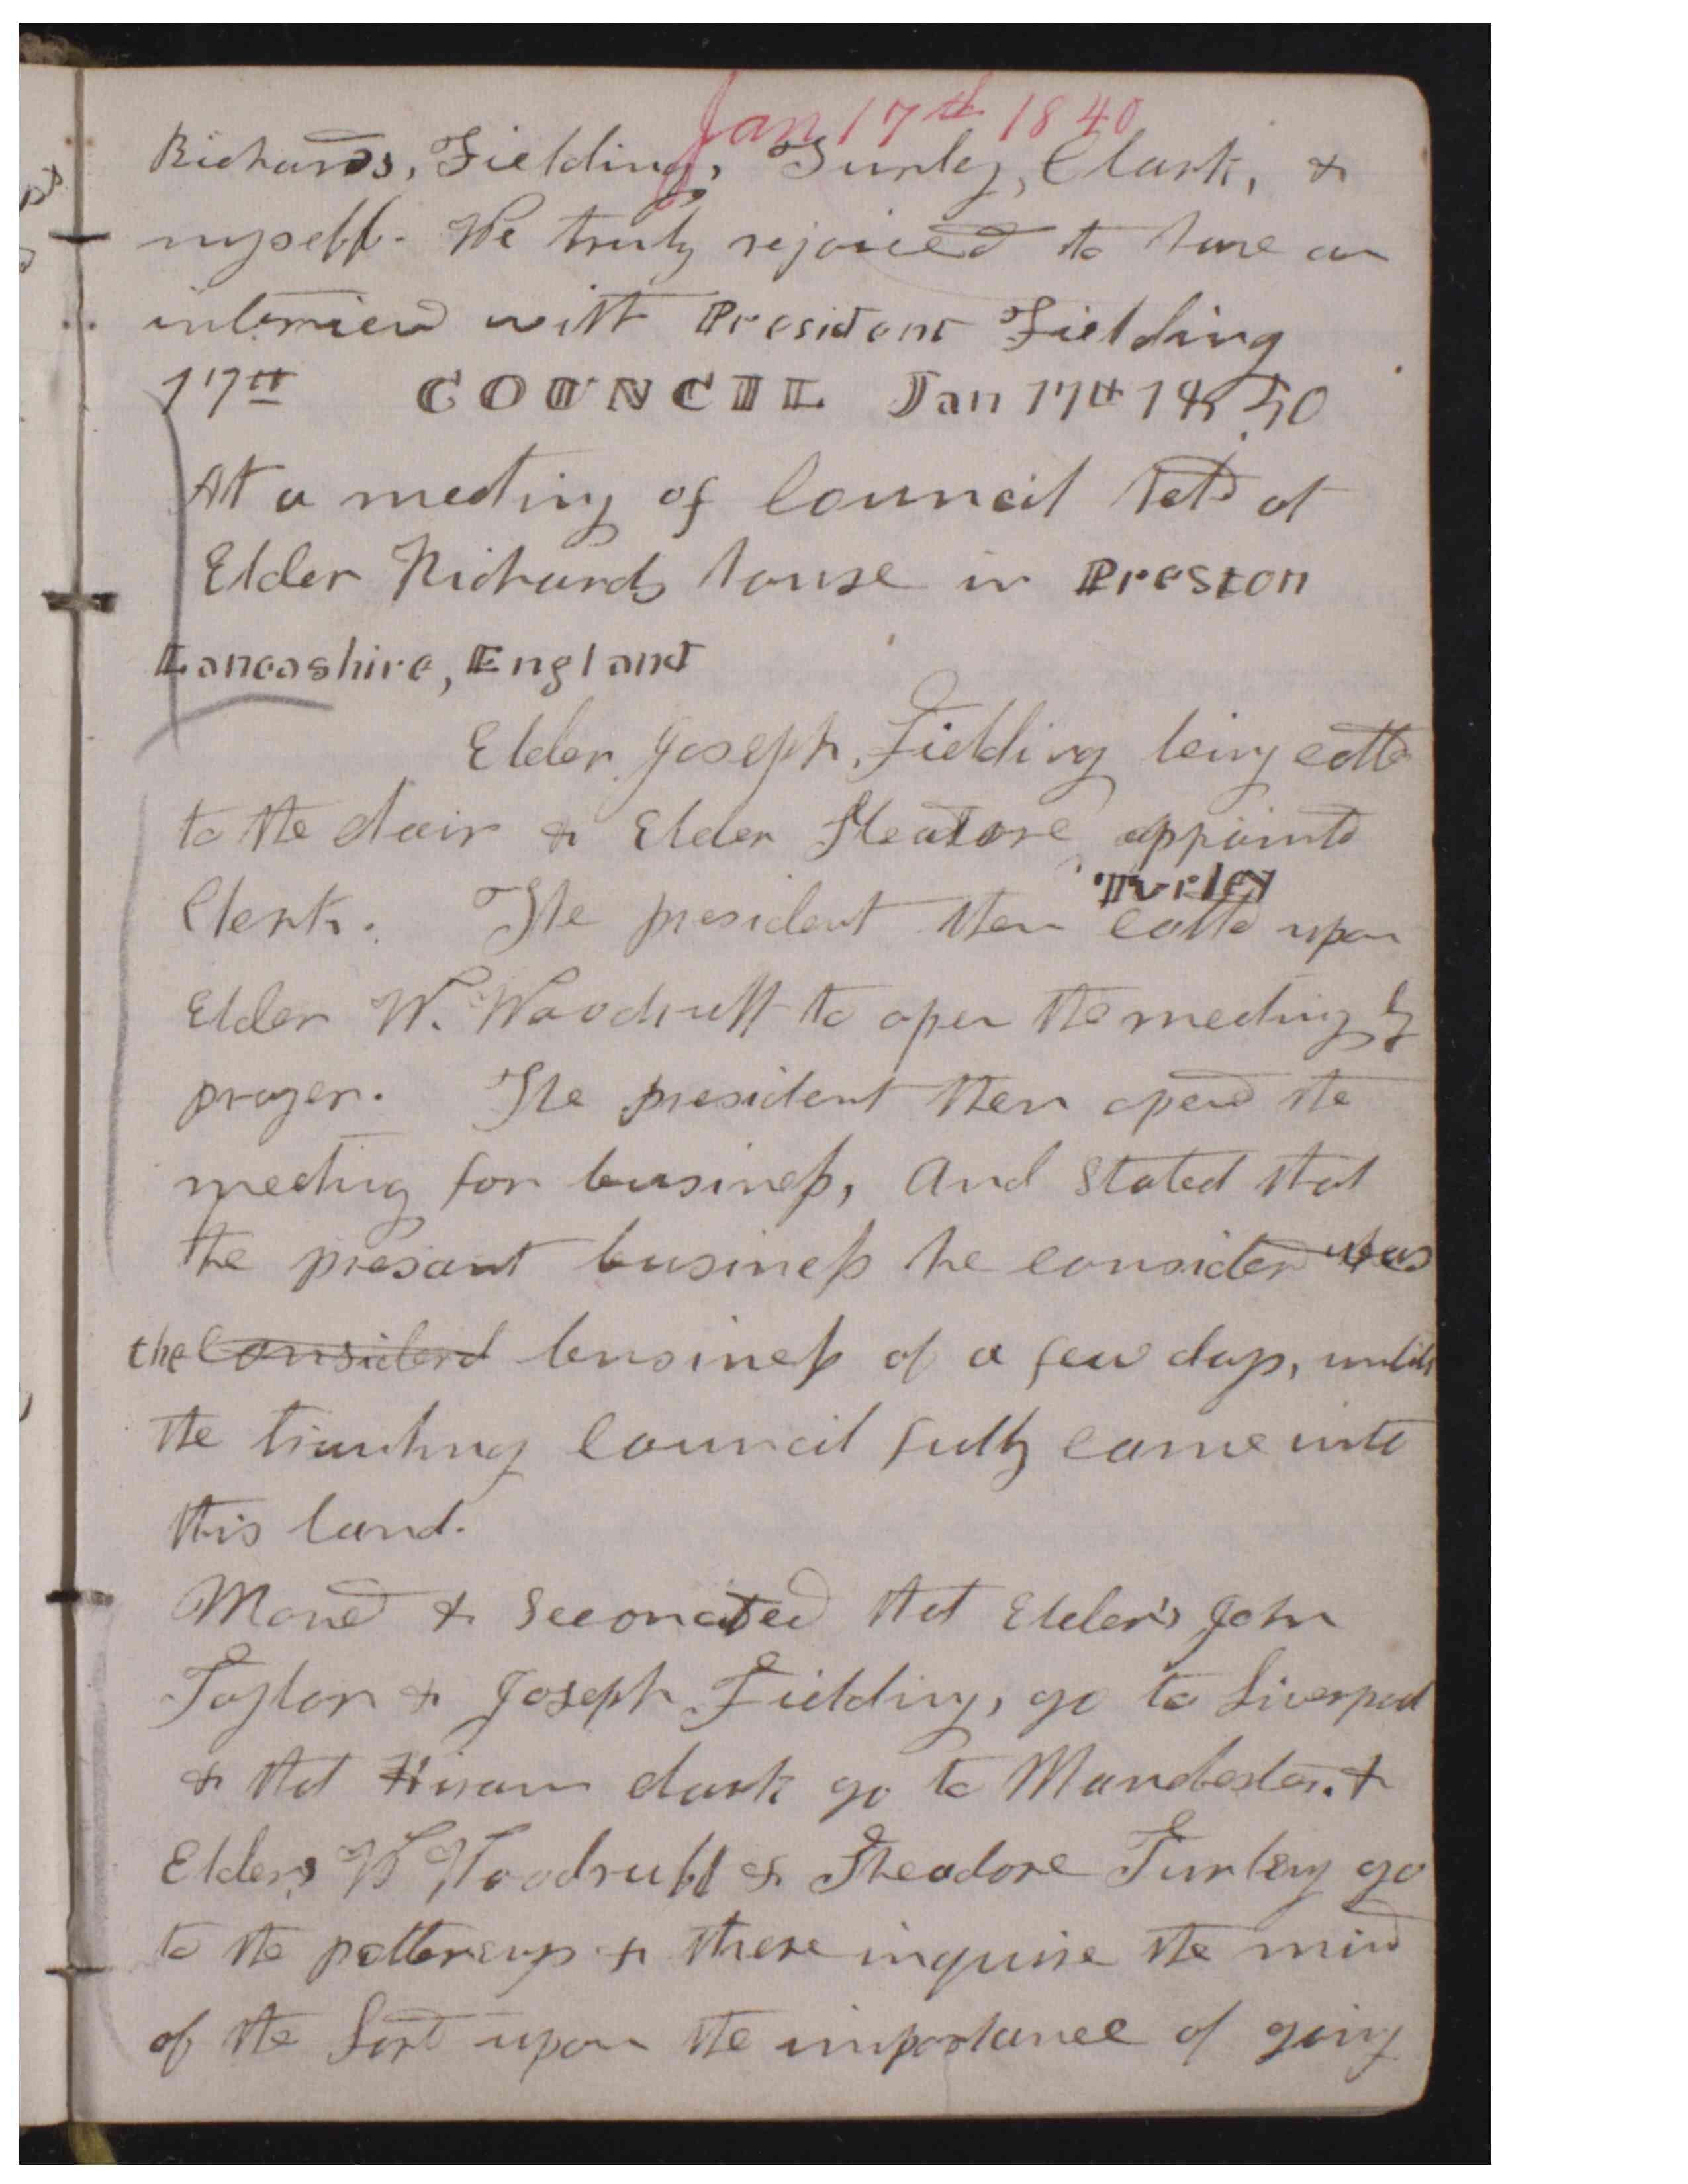 Jan 17th 1840
Richards, Fielding, Turley, Clark, &
myself. We truly rejoiced to have an
interview with President Fielding
17th COUNCIL Jan 17th 1840
At a meeting of Council held at
Elder Richards house in Preston
Lancashire, England
Elder Joseph Fielding being calld
to the chair & Elder Theadore appointd
Turley
Clerk. The president then calld upon
Elder W. Woodruff to open the meeting by
prayer. The president then opend the
meeting for business, and stated that
the presant business he considerd was
the considerd business of a few days, untill
the traveling Council fully came into
this land.
Moved & Seconded that Elder's John
Taylor & Joseph Fielding, go to Liverpool
& that Hiram Clark go to Manchester. &
Elders W Woodruff & Theadore Turley go
to the potterys & there inquire the mind
of the Lord upon the importance of going